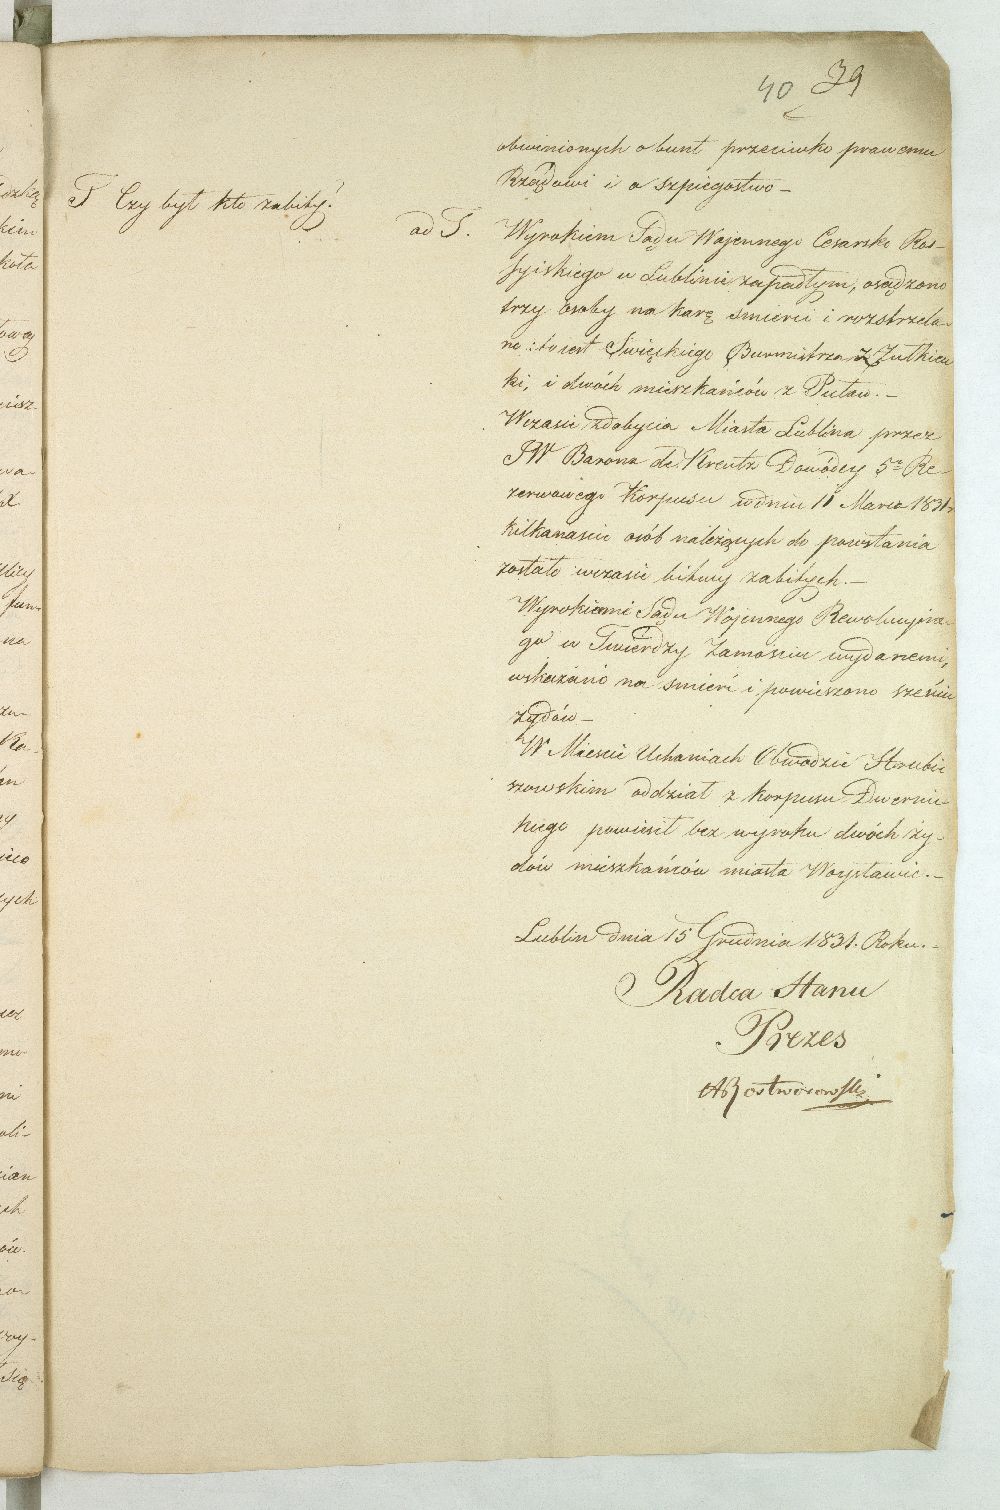 40 39
obwinionych o bunt przeciwko prawemu
Rządowi i o szpiegostwo –
T Czy był kto zabity?
ad T. Wyrokiem Sądu Wojennego Cesarsko Ros-
syiskiego w Lublinie zapadłym, osądzono
trzy osoby na karę smierci i rozstrzela-
no: to iest Swięckiego Burmistrza z Żułkiew
ki, i dwóch mieszkańców z Puław. –
Wczasie zdobycia Miasta Lublina przez
JW Barona de Kreutz Dowódcy 5º Re-
zerwowego Korpusu w dniu 11 Marca 1831 r
kilkanascie osób należących do powstania
zostało wczasie bitwy zabitych. –
Wyrokiemi Sądu Wojennego Rewolucyine-
go w Twierdzy Zamościu wydanemi,
wskazano na smierć i powieszono sześciu
żydów –
W Miescie Uchaniach Obwodzie Hrubie
szowskim oddział z korpusu Dwernic
kiego powiesił bez wyroku dwóch ży-
dów mieszkańców miasta Woysławic. –
Lublin dnia 15 Grudnia 1831. Roku. –
Radca Stanu
Prezes
A Rostworowski